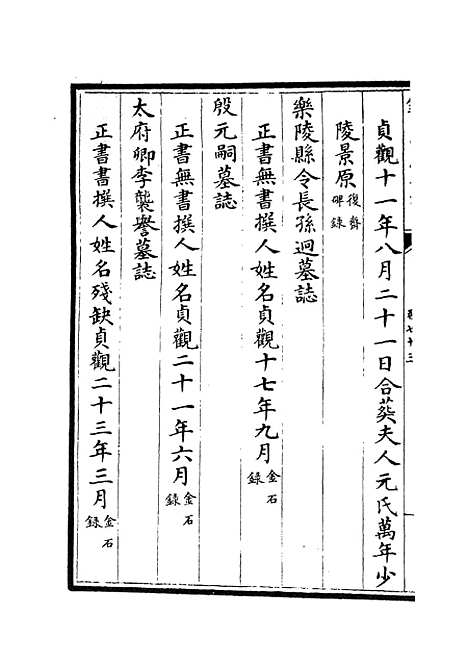 貞觀十一年八月二十一日合葬夫人元氏萬年少
陵景原復齋碑錄
樂陵縣令長孫迥墓誌
正書無書撰人姓名貞觀十七年九月金石錄
殷元嗣墓誌
正書無書撰人姓名貞觀二十一年六月金石錄
太府卿李襲譽墓誌
正書書撰人姓名殘缺貞觀二十三年三月金石錄